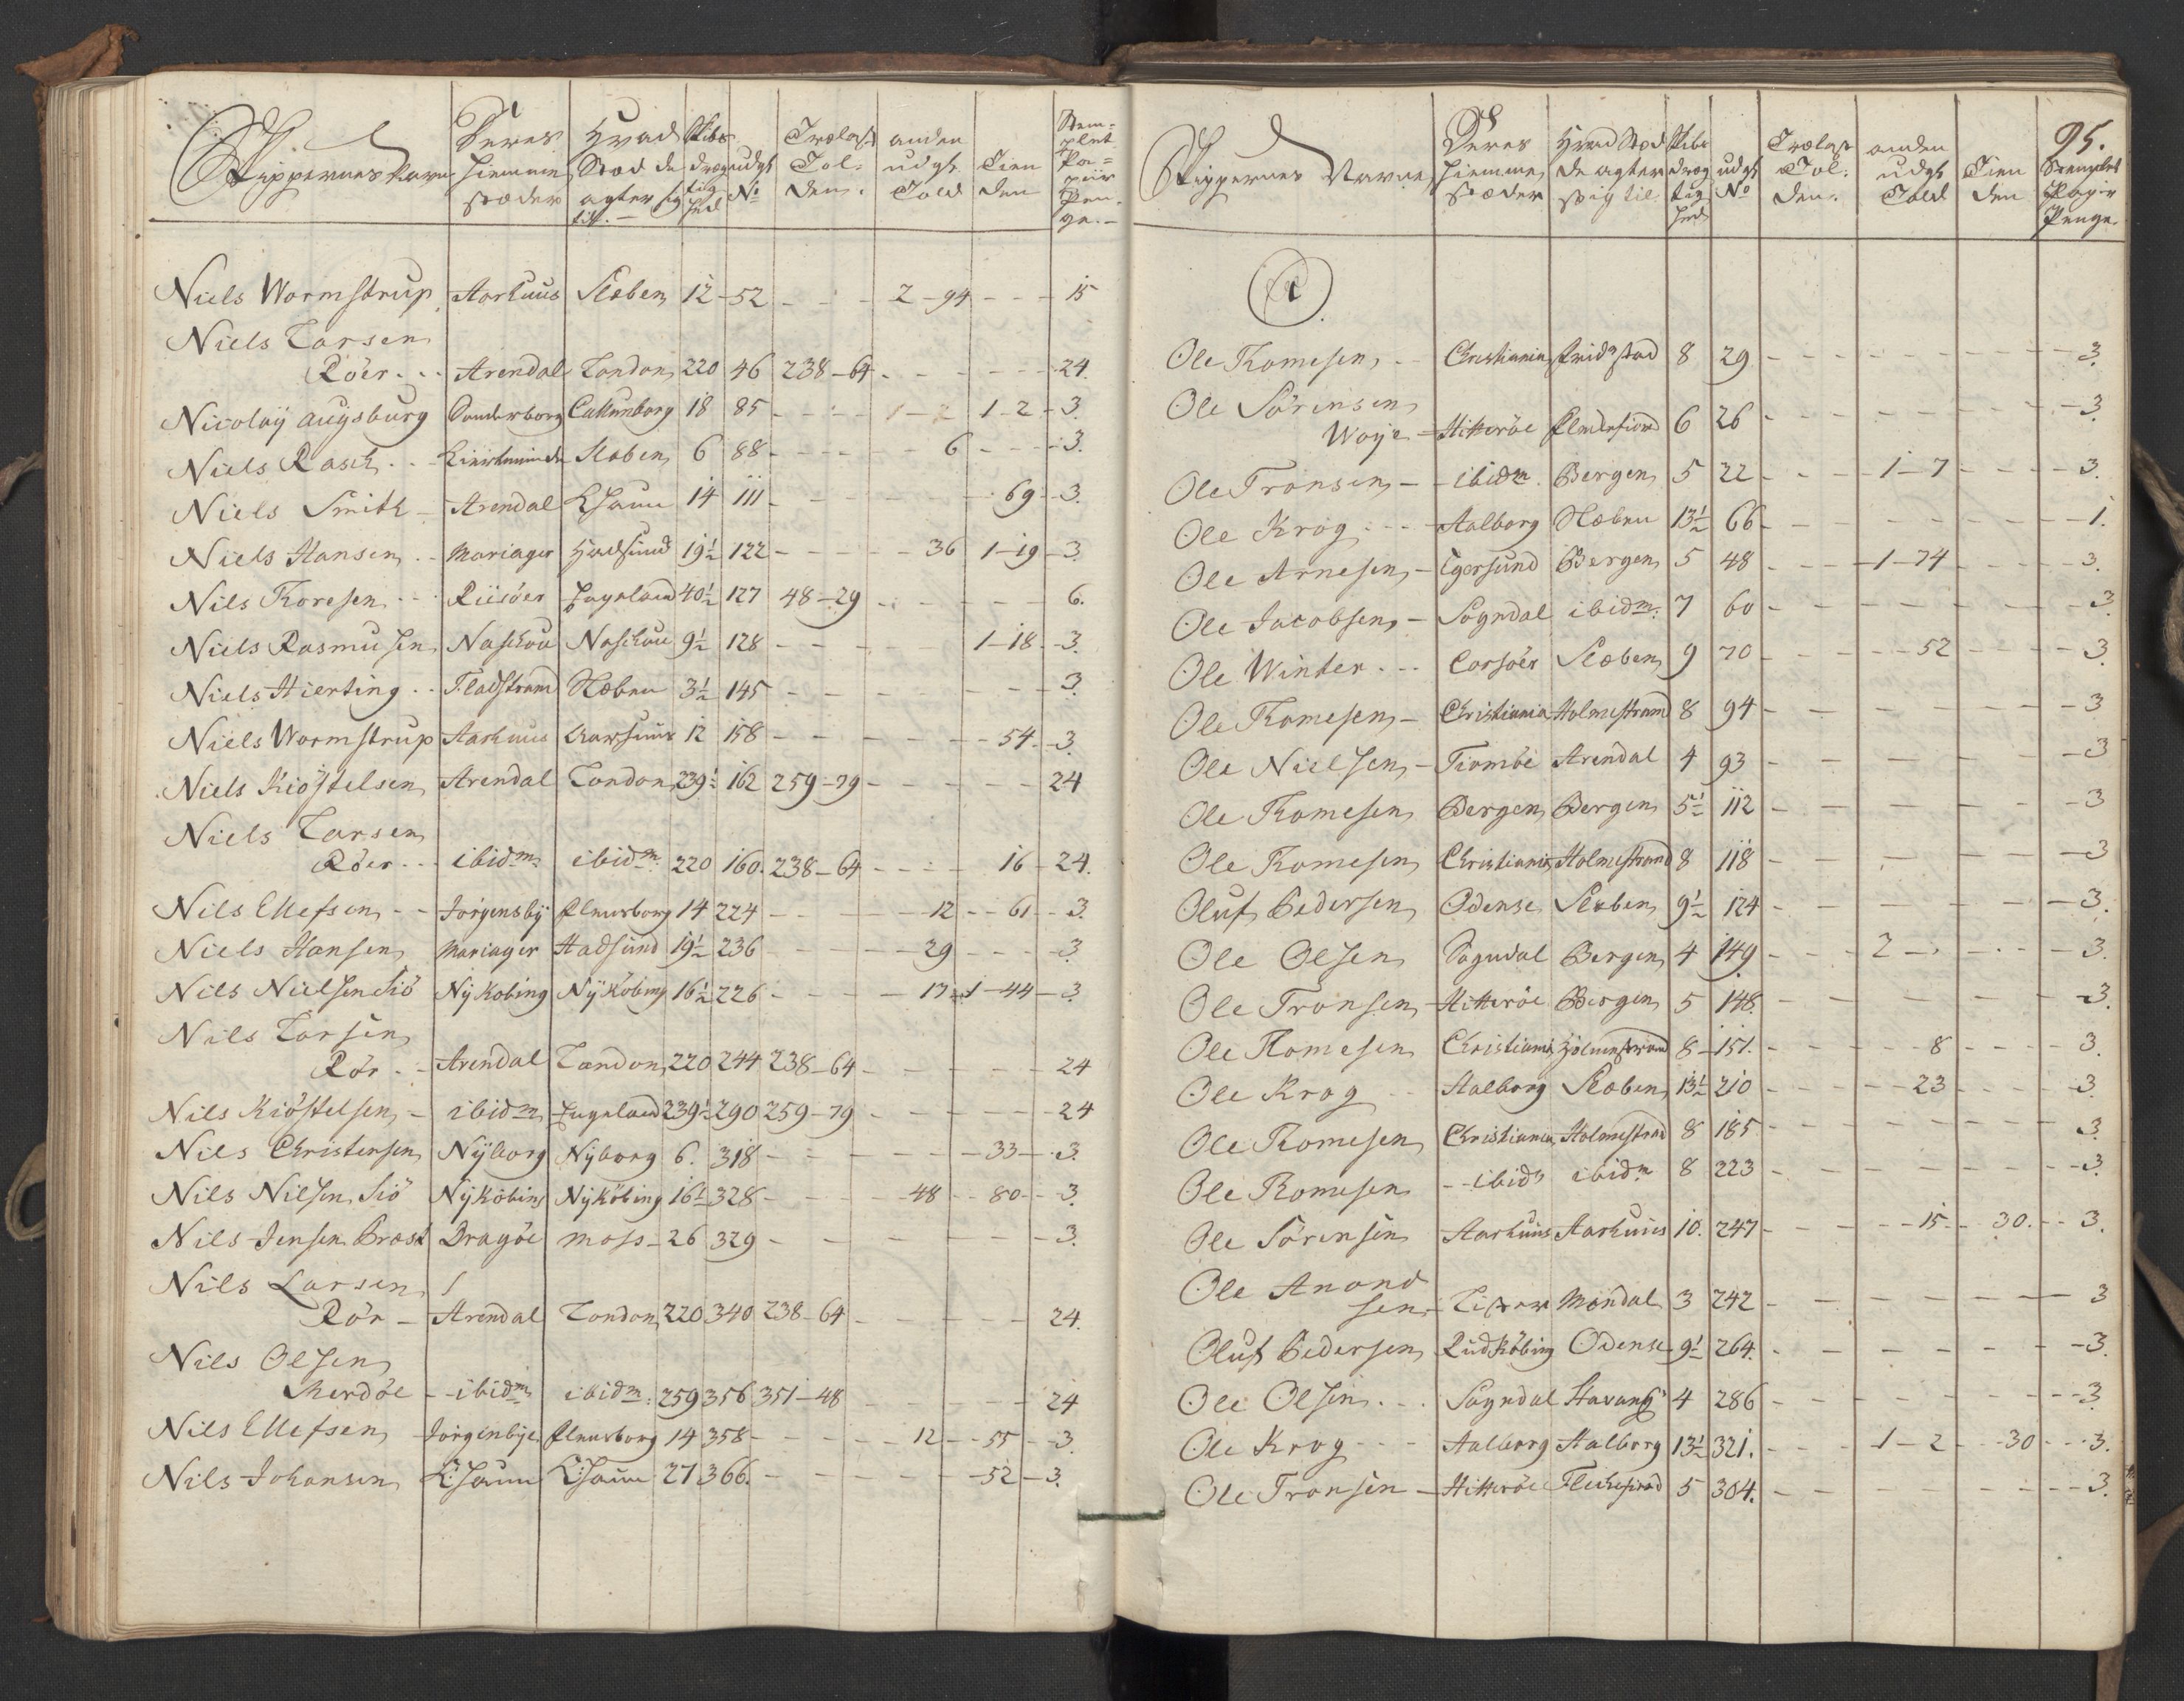 Skippernes Navne | Deres Hiemme stæder | Hvad Stæd de agter sig til. | Skibs drægtighed | udgs No | Trælast Tolden. | anden udgs Told | Tienden | Stemplet Papiir Penge.
Niels Wormstrup | Aarhuus | Sleben | 12 | 52 | - | 2-94 | - | 15
Niels Larsen
Röer | Arendal | London | 220 | 46 | 238-64 | - | - | 24.
Nicolaÿ Augsburg | Sonderborg | Callunborg | 18 | 85 | - | - | 1-2 | 3.
Niels Rasch | Kierteminde | Sleben | 6 | 88 | - | 6 | - | 3.
Niels Smith | Arendal | Khaun | 14 | 111 | - | - | 69 | 3.
Niels Hansen | Mariager | Hadsund | 19½ | 122 | - | 36 | 1-19 | 3
Nils Thoresen | Riisöer | Engeland | 40½ | 127 | 48-29 | - | - | 6.
Niels Rasmusen | Naschou | Naschou | 9½ | 128 | - | - | 1-18 | 3.
Niels Hierting | Fladstrand | Sleben | 3½ | 145 | - | - | - | 3.
Niels Wormstrup | Aarhuus | Aarhuus | 12 | 158 | - | - | 54 | 3.
Niels Kiöstelsen | Arendal | London | 239½ | 162 | 259-79 | - | - | 24
Niels Larsen
Röer | ibidm | ibidm | 220 | 160. | 238-64 | - | 16 | 24.
Nils Ellefsen | Jörgensbÿ | Flensborg | 14 | 224 | - | 12 | 61 | 3.
Niels Hansen | Mariager | Hadsund | 19½ | 236 | - | 29 | - | 3
Nils Nielsen Siö | Nÿkobing | Nÿköbing | 16½ | 226 | - | 17 | 1-44 | 3
Nils Larsen
Rör | Arendal | London | 220 | 244 | 238-64 | - | - | 24
Nils Kiöstelsen | ibidm | Engeland | 239½ | 290 | 259-79 | - | - | 24
Nils Christensen | Nÿborg | Nÿborg | 6. | 318 | - | - | 33 | 3.
Nils Nilsen Siö | Nÿköbing | Nÿköbing | 16½ | 328 | - | 48 | 80 | 3.
Nils Jensen Brast | Dragöe | Moss | 26 | 329 | - | - | - | 3.
Nils Larsen
Rör | Arendal | London | 220 | 340 | 238-64 | - | - | 24.
Nils Olsen
Merdöe | ibidm | ibidm | 259 | 356 | 351-48 | - | - | 24
Nils Ellefsen | Jörgenbÿe | Flensborg | 14 | 358 | - | 12 | 55 | 3.
Nils Johansen | Khaun | Khaun | 27 | 366. | - | - | 52 | 3.
95.
Skippernes Navne | Deres Hiemme stæder | Hvad Stæd de agter sig til | Skibs drægtighed | udgs No | Trælast Tolden. | anden udgs Told | Tienden | Stemplet Papir Penge.
O
Ole Thomesen | Christiania | Fridrstad | 8 | 29 | - | - | - | 3.
Ole Sörensen
Woye | Hitteröe | 6 | 26 | - | - | - | 3
Ole Tronsen | ibidm | Bergen | 5 | 22 | - | 1-7 | - | 3.
Ole Krog | Aalborg | Sleben | 13½ | 66 | - | - | - | 1.
Ole Arnesen | Egersund | Bergen | 5 | 48 | - | 1-74 | - | 3.
Ole Jacobsen | Sogndal | ibidm. | 7 | 60 | - | - | - | 3.
Ole Winter | Corsöer | Sleben | 9 | 70 | - | 52 | - | 3.
Ole Thomesen | Christiania | Holmestrand | 8 | 94 | - | - | - | 3
Ole Nielsen | Tromöe | Arendal | 4 | 93 | - | - | - | 3
Ole Thomesen | Bergen | Bergen | 5½ | 112 | - | - | - | 3
Ole Thomesen | Christiania | Holmestrand | 8 | 118 | - | - | - | 3
Oluf Pedersen | Odense | Sleben | 9½ | 124 | - | - | - | 3.
Ole Olsen | Sogndal | Bergen | 4 | 149 | - | 2 - | - | 3.
Ole Tronsen | Hitteröe | Bergen | 5 | 148. | - | - | - | 3.
Ole Thomesen | Christiania | Holmestrand | 8 | 151. | - | 8 | - | 3.
Ole Krog | Aalborg | Sleben | 13½ | 210 | - | 23 | - | 3
Ole Thomesen | Christiania | Holmestrand | 8 | 185 | - | - | - | 3.
Ole Thomesen | ibidm | ibidm | 8 | 223 | - | - | - | 3.
Ole Sörensen | Aarhuus | Aarhuus | 10. | 247 | - | 15 | 30. | 3.
Ole Anond
sen | Lister | Mandal | 3 | 242 | - | - | - | 3
Oluf Pedersen | Rudköbing | Odense | 9½ | 264. | - | - | - | 3.
Ole Olsen | Sogndal | Stavang | 4 | 286 | - | - | - | 3
Ole Krog | Aalborg | Aalborg | 13½ | 321. | - | 1-2 | 30 | 3.
Ole Tronsen | Hitteröe | Flechefiord | 5 | 304. | - | - | - | 3.